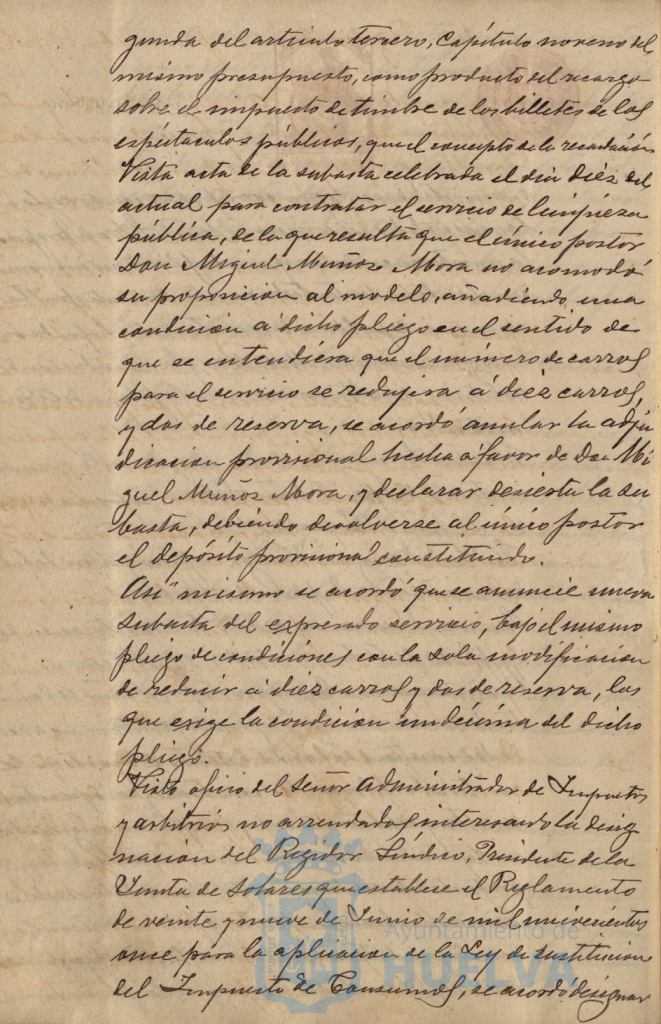 gunda del artículo tercero, Capítulo noveno del
mismo presupuesto, como producto del recargo
sobre el impuesto de timbre de los billetes de los
espectaculos públicos, que el concepto de la recaudación
Vista acta de la subasta celebrada el dia diez del
actual para contratar el servicio de limpieza
pública, de la que resulta que el único postor
Don Miguel Muñoz Mora no acomodó
su proposicion al modelo, añadiendo una
condicion á dicho pliego en el sentido de
que se entendiera que el número de carros
para el servicio se redujera á diez carros,
y dos de reserva, se acordó anular la adju
dicacion provisional hecha á favor de Don Mi
guel Muñoz Mora, y declarar desierta la su
basta, debiendo devolverse al único postor
el depósito provisional constituido.
Asi mismo se acordó que se anuncie nueva
subasta del expresado servicio, bajo el mismo
pliego de condiciones con la sola modificacion
de reducir á diez carros y dos de reserva, los
que exige la condicion undécima del dicho
pliego.
Visto oficio del Señor Administrador de Impuestos
y arbitrios no arrendados interesando la desig
nacion del Regidor Síndico, Presidente de la
Junta de Solares que establece el Reglamento
de veinte y nueve de Junio de mil novecientos
once para la aplicacion de la Ley de sustitucion
del Impuesto de Consumos, se acordó designar
Ayuntamiento de
HUELVA